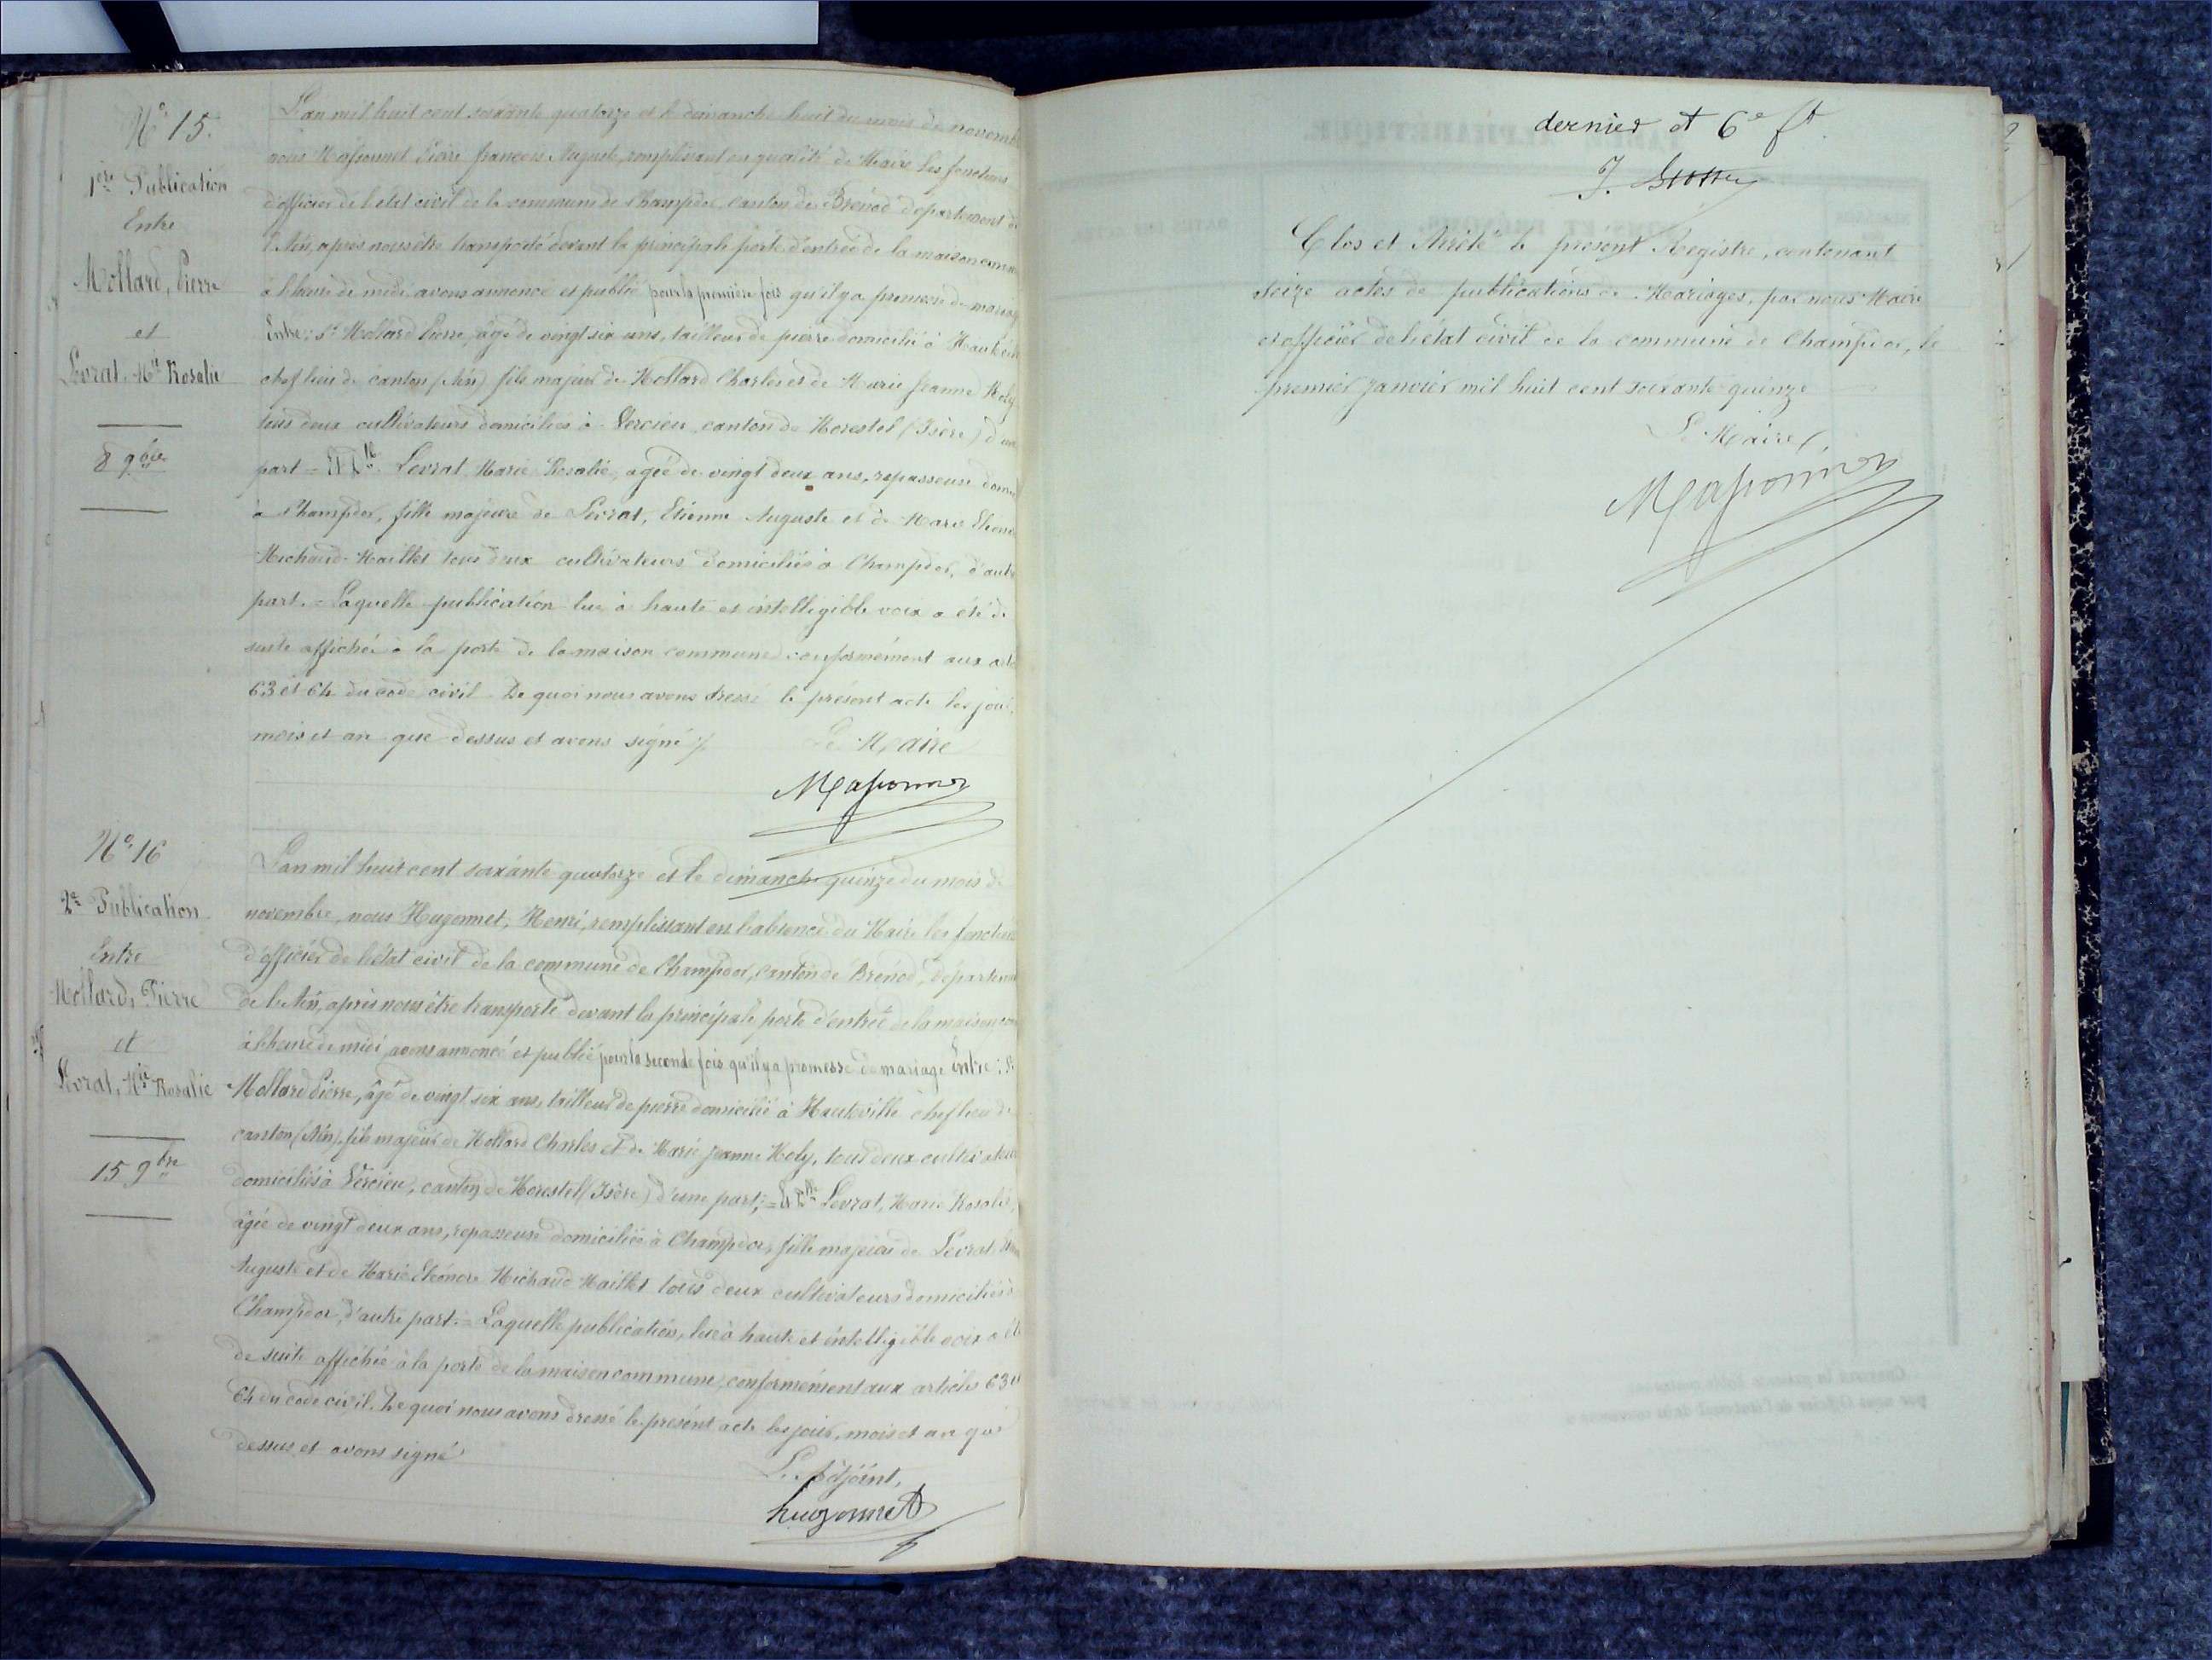 N° 15.
1ère Publication
Entre
Mollard, Pierre
et
Levrat, Mie Rosalie
8 9bre
L'an mil huit cent soixante quatorze et le dimanche huit du mois de novemb
nous Massonnet Pierre françois Auguste, remplissant en qualité de Maire les fonctions
d'officier de l'état civil de la commune de Champdor, canton de Brénod département de
l'Ain, après nous être transporté devant la principale porte d'entrée de la maison comm
à l'heure de midi avons annoncé et publié pour la première fois qu'il y a promesse de mariag
Entre : Sr Mollard Pierre, âgé de vingt six ans, tailleur de pierre domicilié à Hautevil
chef lieu de canton (Ain) fils majeur de Mollard Charles et de Marie Jeanne Moly
tous deux cultivateurs domiciliés à Vercieu, canton de Morestel (Isère) d'une
part = Et Dlle Levrat, Marie Rosalie, âgée de vingt deux ans, repasseuse domi
à Champdor, fille majeure de Levrat, Etienne Auguste et de Marie Eléono
Michaud-Maillet tous deux cultivateurs domiciliés à Champdor, d'autre
part. = Laquelle publication lue à haute et intelligible voix a été de
suite affichée à la porte de la maison commune conformément aux arti
63 et 64 du code civil. De quoi nous avons dressé le présent acte les jour,
mois et an que dessus et avons signé
Le Maire
Massonnet
N° 16
2e Publication
Entre
Mollard, Pierre
et
Levrat, Mie Rosalie
15 9bre
L'an mil huit cent soixante quatorze et le dimanche quinze du mois de
novembre, nous Hugonnet, Henri, remplissant en l'absence du Maire les fonction
d'officier de l'état civil de la commune de Champdor, canton de Brénod, départeme
de l'Ain, après nous être transporté devant la principale porte d'entrée de la maison com
à l'heure de midi, avons annoncé et publié pour la seconde fois qu'il y a promesse de mariage Entre : Sr
Mollard Pierre, âgé de vingt six ans, tailleur de pierre domicilié à Hauteville chef lieu de
canton (Ain), fils majeur de Mollard Charles et de Marie Jeanne Moly, tous deux cultivateur
domiciliés à Vercieu, canton de Morestel (Isère) d'une part; = Et Dlle Levrat, Marie Rosalie,
âgée de vingt deux ans, repasseuse domiciliée à Champdor, fille majeure de Levrat,
Auguste et de Marie Eléonore Michaud Maillet tous deux cultivateurs domiciliés à
Champdor, d'autre part. = Laquelle publication, lue à haute et intelligible voix a été
de suite affichée à la porte de la maison commune, conformément aux articles 63 et
64 du code civil. De quoi nous avons dressé le présent acte les jour, mois et an que
dessus et avons signé
L'adjoint,
hugonnet
dernier et 6e ft.
Clos et Arrêté le présent Registre, contenant
seize actes de publications de Mariages, par nous Maire
et officier de l'état civil de la commune de Champdor, le
premier janvier mil huit cent soixante quinze
Le Maire,
Massonnet